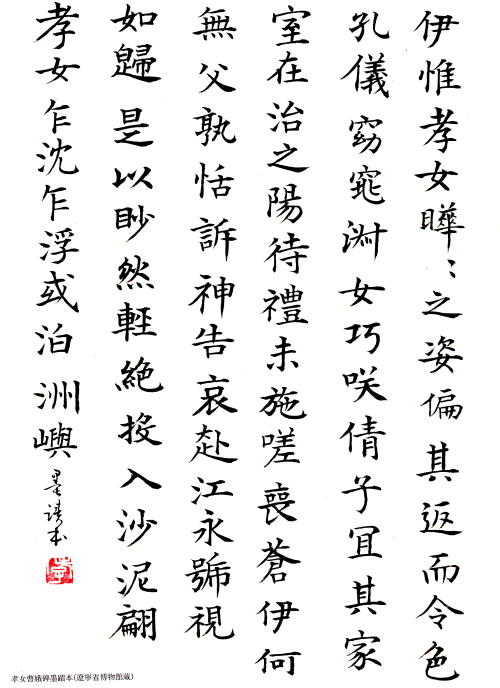 伊惟孝女曄〻之姿偏其返而令色
孔儀窈窕淑女巧咲倩子冝其家
室在洽之陽待禮未施嗟喪蒼伊何
無父孰恃訴神告哀赴江永號視
如歸是以眇然輕絶投入沙泥翩
孝女乍沈乍浮或泊洲嶼
孝女曹娥碑墨蹟本(遼寧省博物館蔵)